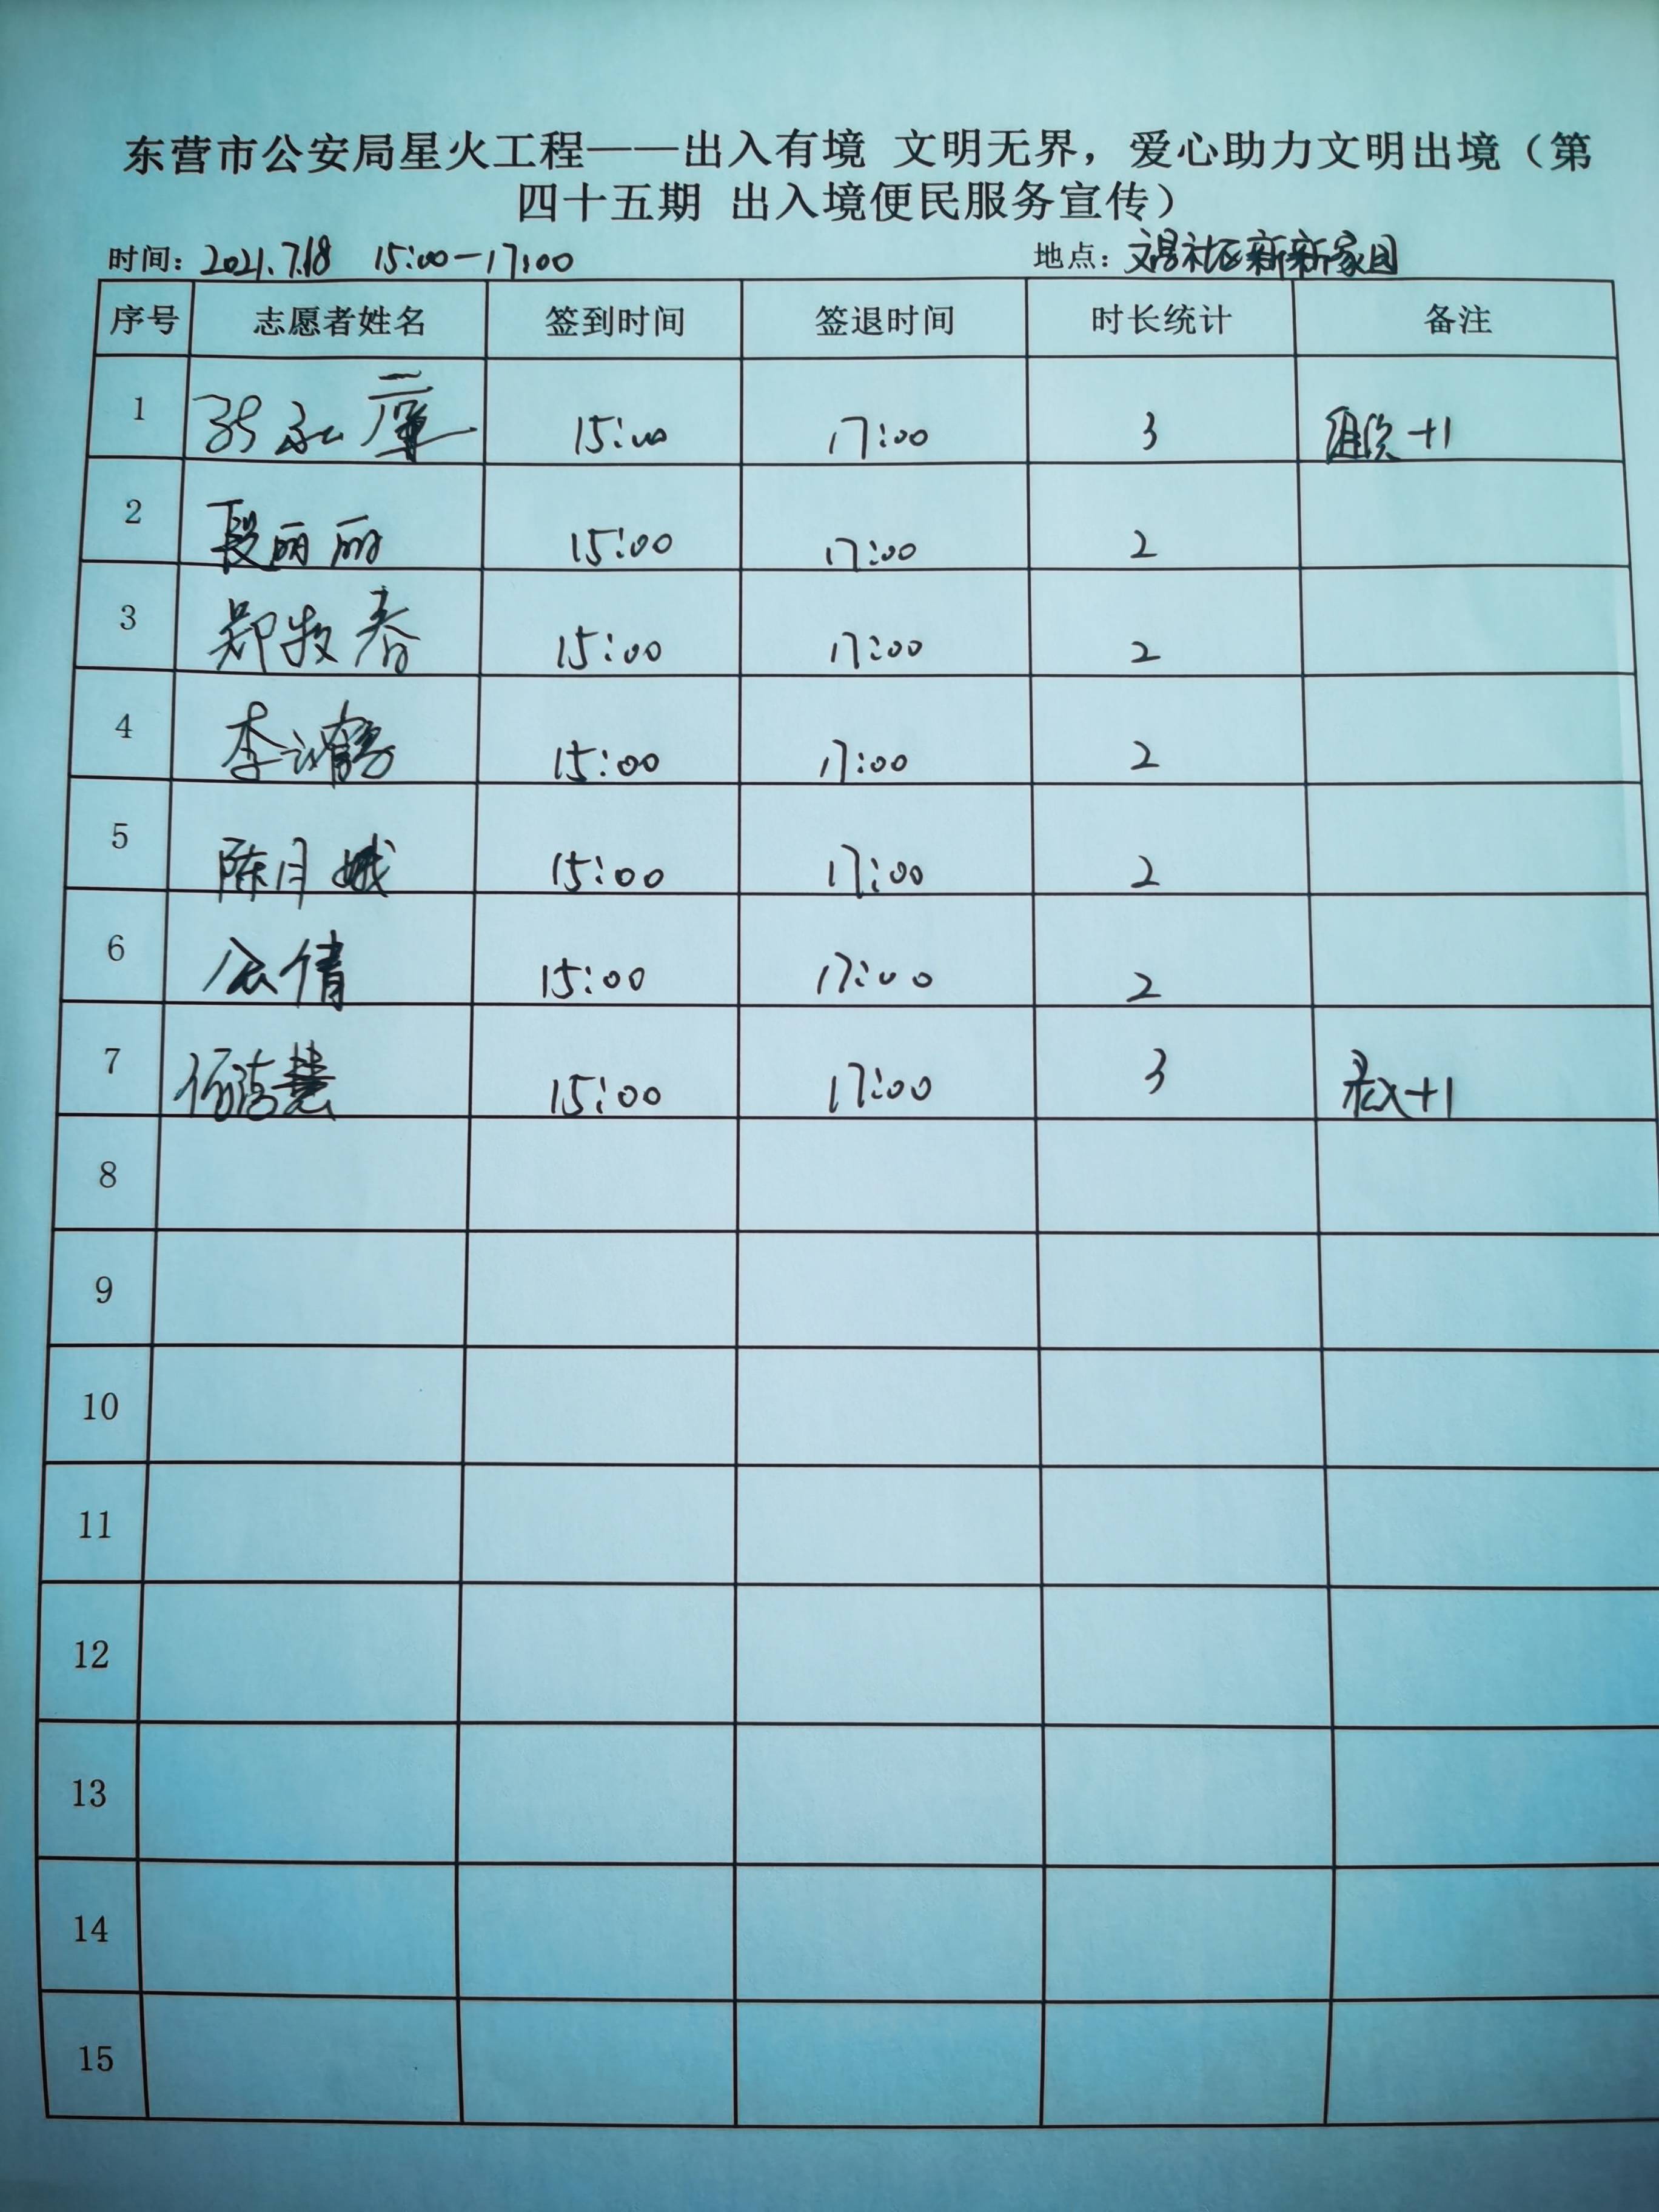 东营市公安局星火工程——出入有境 文明无界，爱心助力文明出境（第
四十五期 出入境便民服务宣传）
时间：2021.7.18 15:00-17:00 地点：文昌社区新新家园
序号 志愿者姓名 签到时间 签退时间 时长统计 备注
1 15:00 17:00 3 +1
2 段丽丽 15:00 17:00 2
3 郑牧春 15:00 17:00 2
4 李 15:00 17:00 2
5 陈月娥 15:00 17:00 2
6 倩 15:00 17:00 2
7 慧 15:00 17:00 3 录入+1
8
9
10
11
12
13
14
15